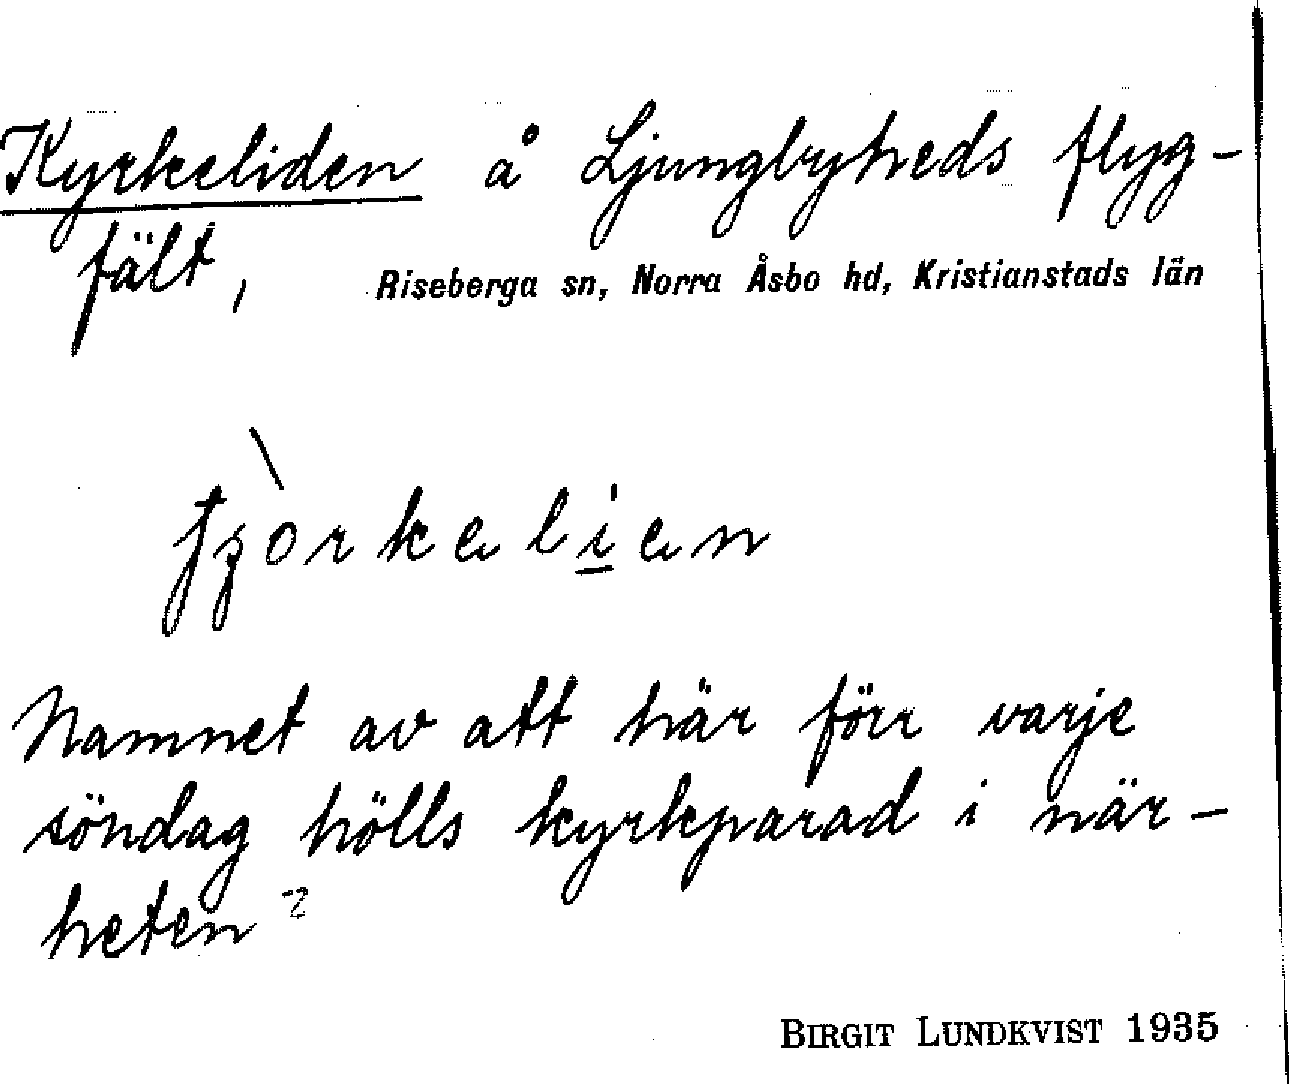 Kyrkeliden å Ljungbyheds flyg-
fält,
Riseberga sn, Norra Åsbo hd, Kristianstads län
Namnet av att här förr varje
söndag hölls kyrkparad i när-
heten ?
BIRGIT LUNDKVIST 1935